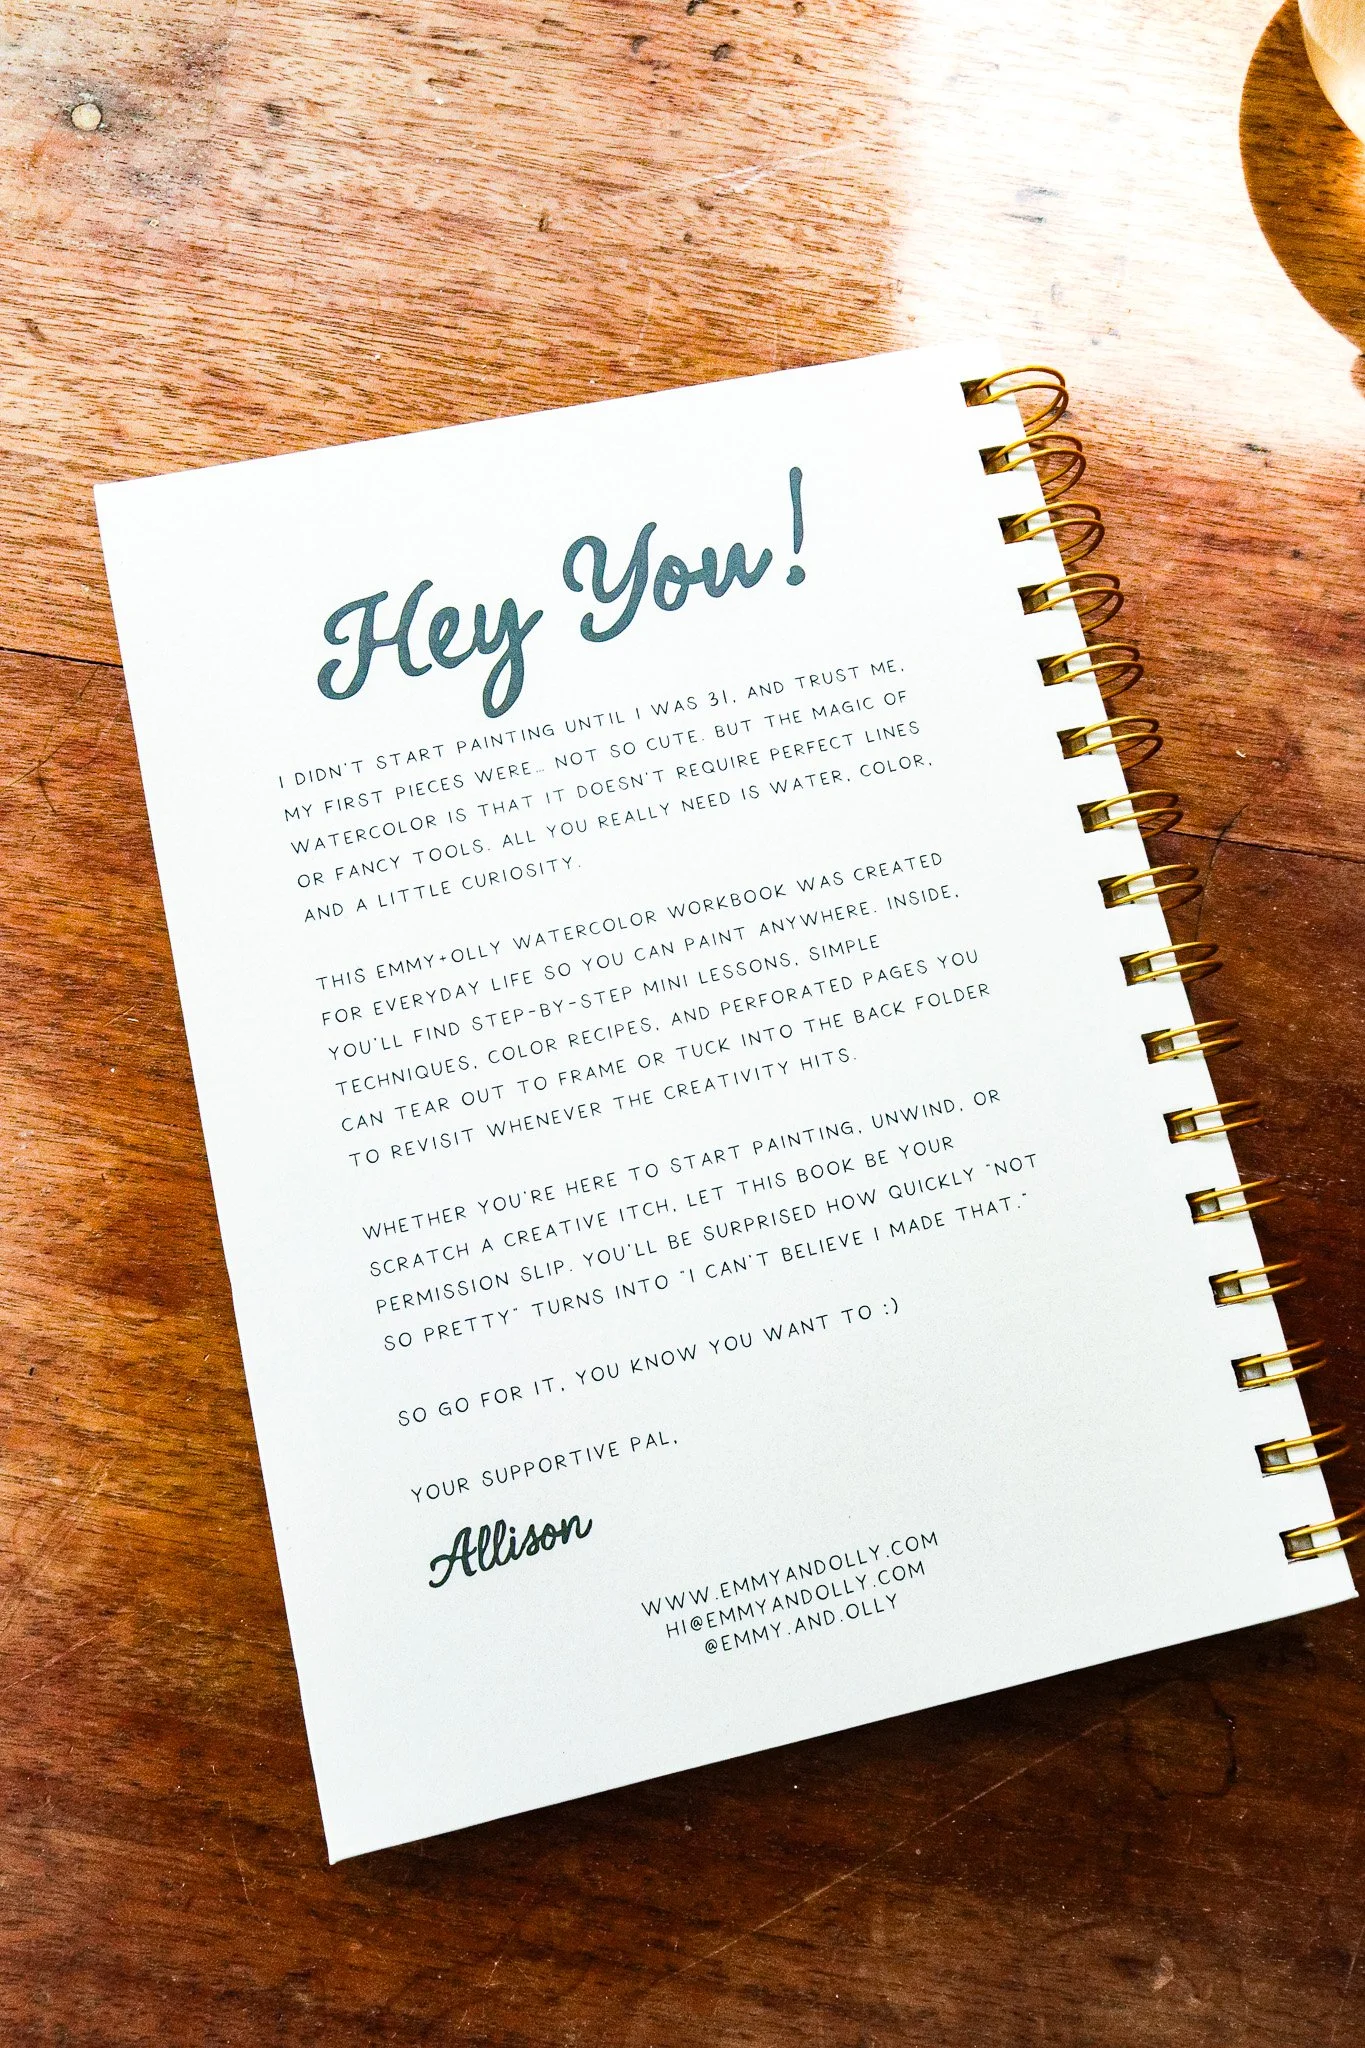 Hey You!
I DIDN'T START PAINTING UNTIL I WAS 31, AND TRUST ME,
MY FIRST PIECES WERE... NOT SO CUTE. BUT THE MAGIC OF
WATERCOLOR IS THAT IT DOESN'T REQUIRE PERFECT LINES
OR FANCY TOOLS. ALL YOU REALLY NEED IS WATER, COLOR,
AND A LITTLE CURIOSITY.
THIS EMMY+OLLY WATERCOLOR WORKBOOK WAS CREATED
FOR EVERYDAY LIFE SO YOU CAN PAINT ANYWHERE. INSIDE,
YOU'LL FIND STEP-BY-STEP MINI LESSONS, SIMPLE
TECHNIQUES, COLOR RECIPES, AND PERFORATED PAGES YOU
CAN TEAR OUT TO FRAME OR TUCK INTO THE BACK FOLDER
TO REVISIT WHENEVER THE CREATIVITY HITS.
WHETHER YOU'RE HERE TO START PAINTING, UNWIND, OR
SCRATCH A CREATIVE ITCH, LET THIS BOOK BE YOUR
PERMISSION SLIP. YOU'LL BE SURPRISED HOW QUICKLY "NOT
SO PRETTY" TURNS INTO "I CAN'T BELIEVE I MADE THAT."
SO GO FOR IT, YOU KNOW YOU WANT TO :)
YOUR SUPPORTIVE PAL,
Allison
WWW.EMMYANDOLLY.COM
HI@EMMYANDOLLY.COM
@EMMY.AND.OLLY